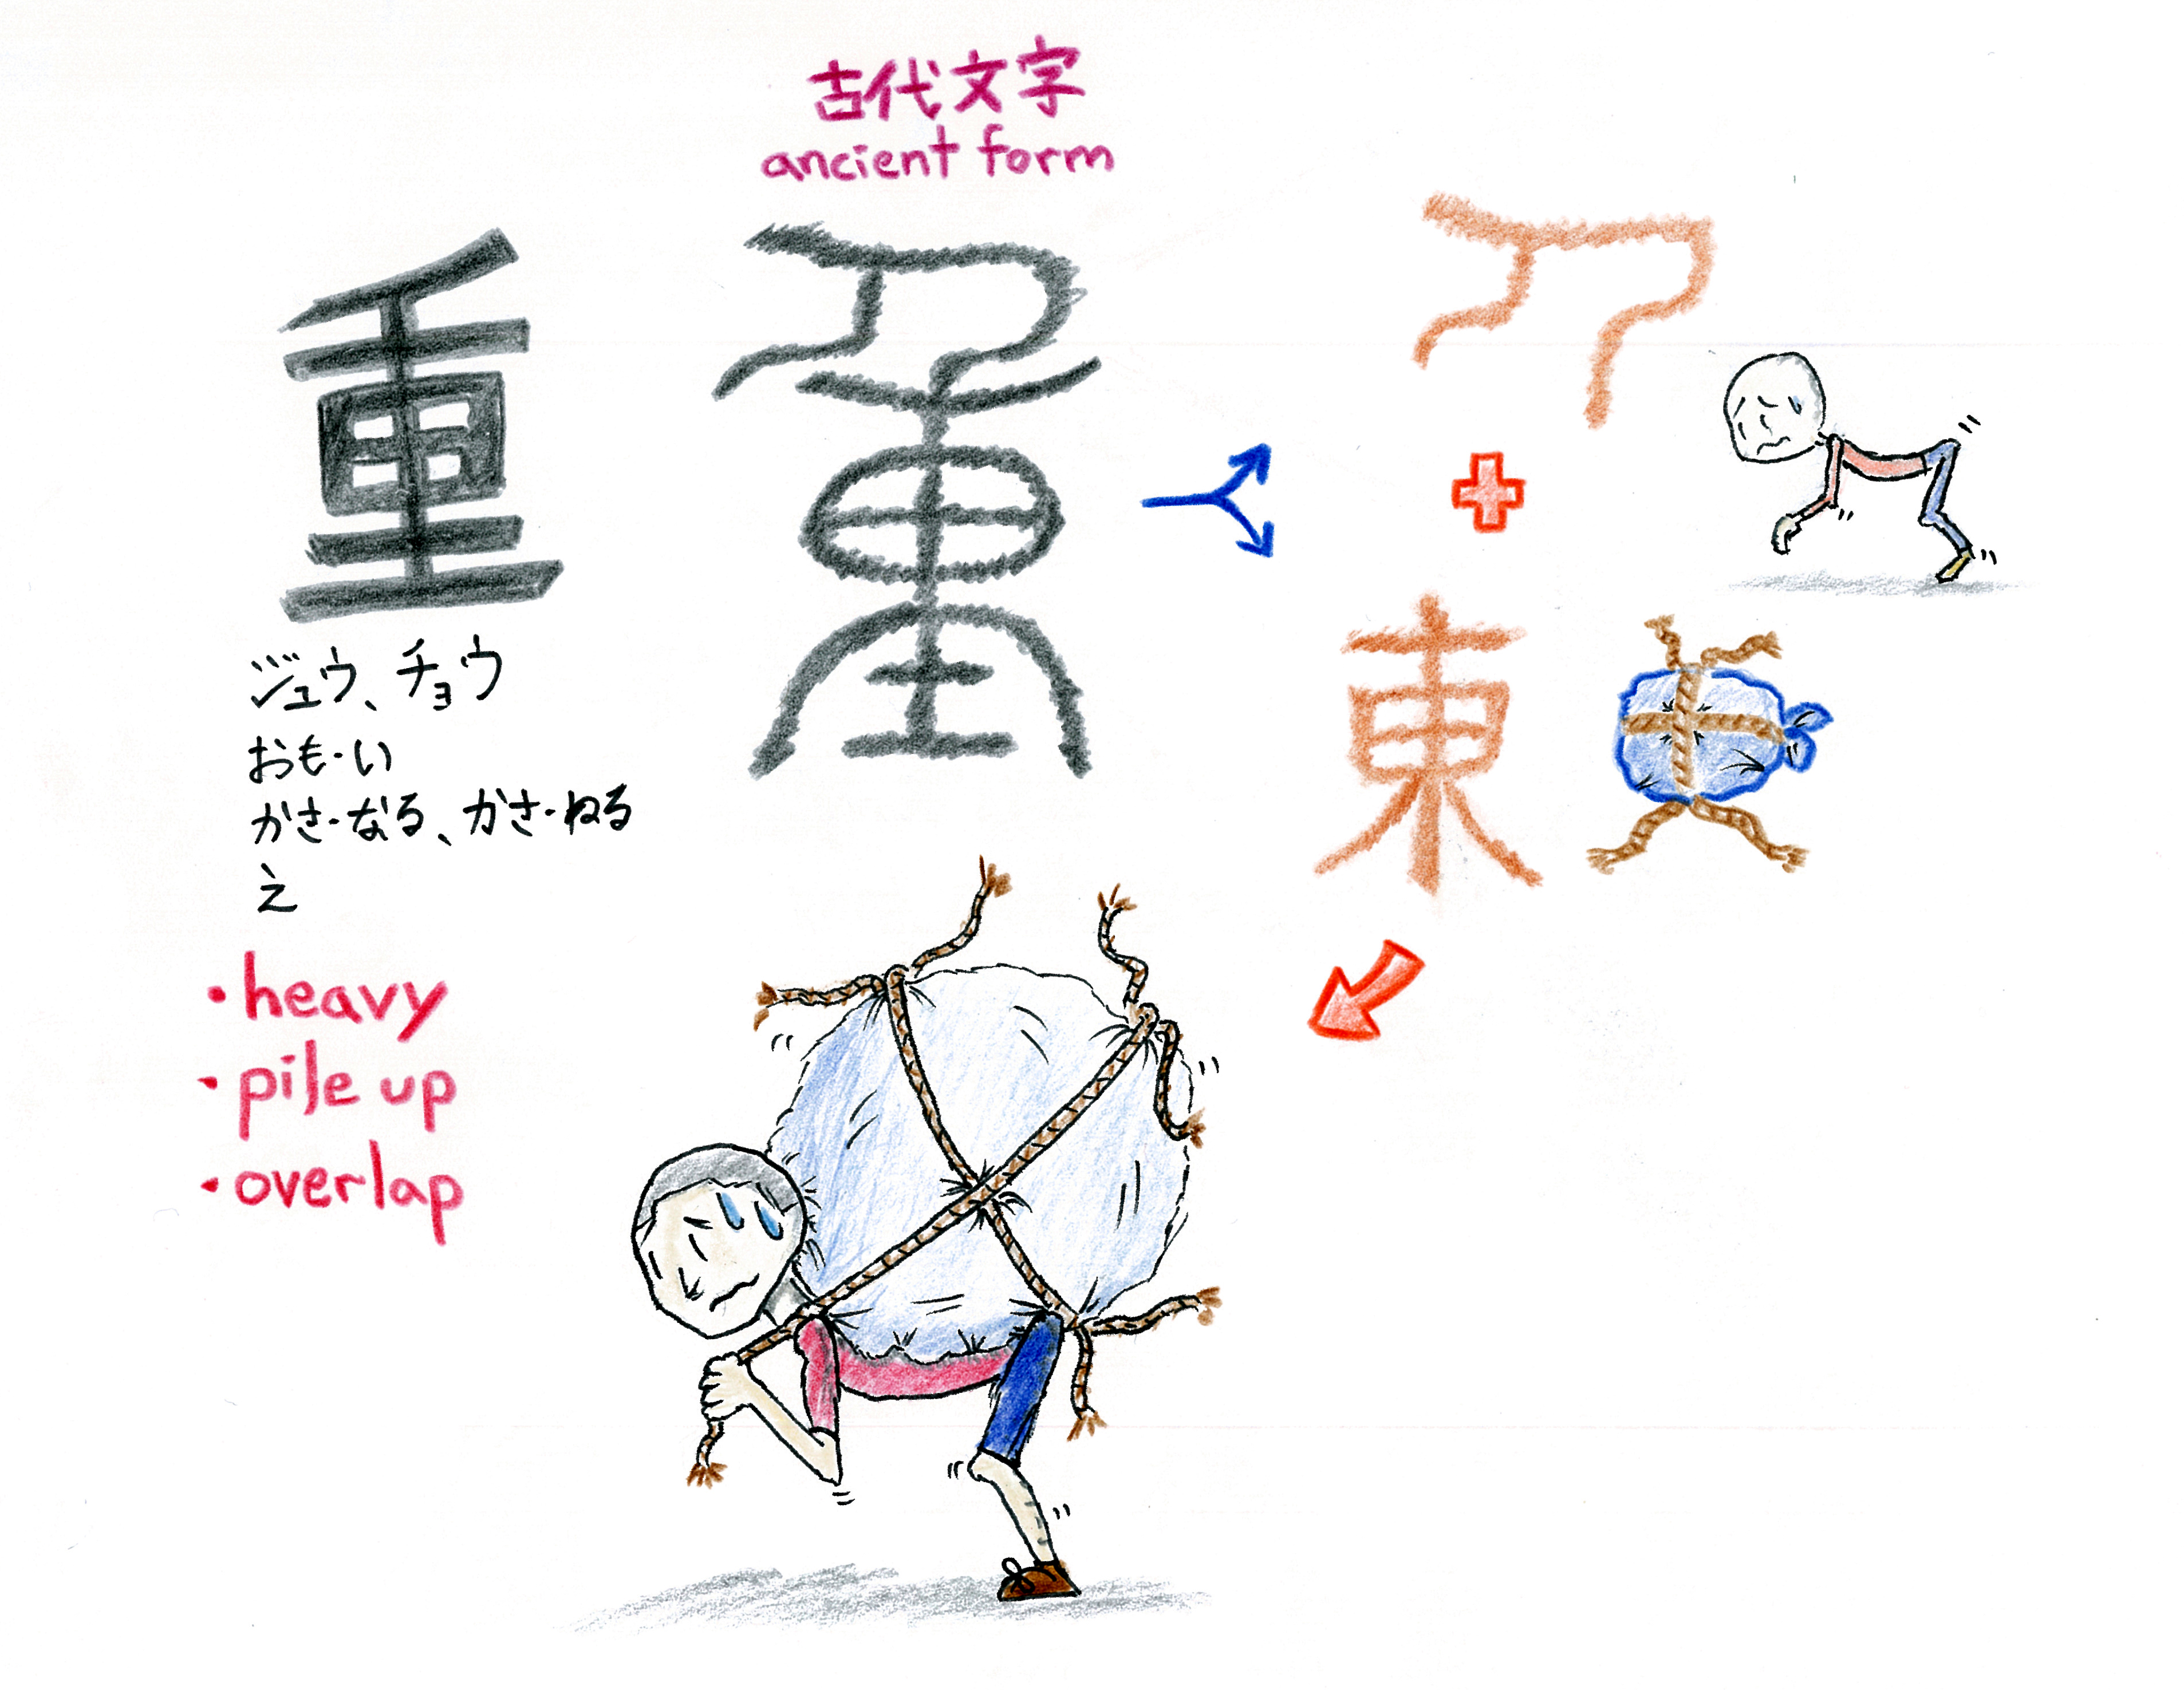 古代文字
ancient form
重
ジュウ、チョウ
おも・い
かさ・なる、かさ・ねる
え
・heavy
・pile up
・overlap
東